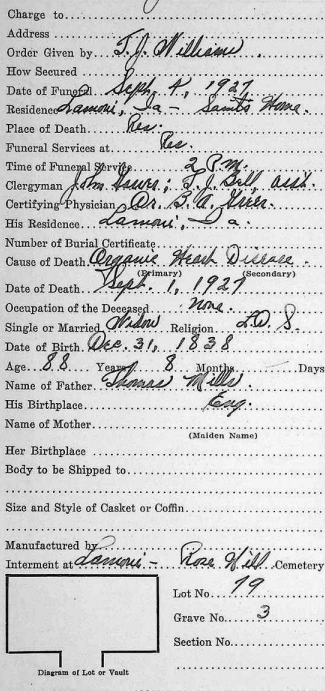 Charge to
Address
Order Given by T. J. Williams.
How Secured
Date of Funeral Sept. 4, 1927
Residence Lamoni, Ia - Saints Home.
Place of Death Res.
Funeral Services at Res.
Time of Funeral Service 2 P.M.
Clergyman John ; T. J. Bell, asst.
Certifying Physician Dr. B. A.
His Residence Lamoni, Ia.
Number of Burial Certificate
Cause of Death Organic Heart Disease.
(Primary) (Secondary)
Date of Death Sept. 1, 1927
Occupation of the Deceased None.
Single or Married Widow Religion L.D.S.
Date of Birth Dec. 31, 1838
Age 88 Years 8 Months Days
Name of Father Thomas Mills
His Birthplace Eng.
Name of Mother
(Maiden Name)
Her Birthplace
Body to be Shipped to
Size and Style of Casket or Coffin
Manufactured by
Interment at Lamoni - Rose Hill Cemetery
Lot No. 79
Grave No. 3
Section No.
Diagram of Lot or Vault